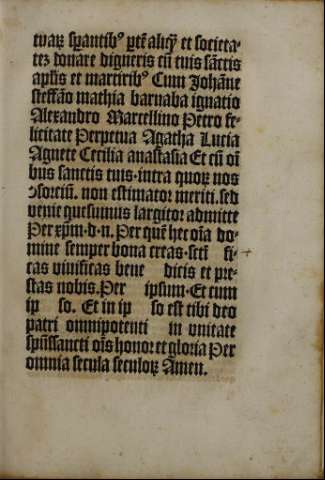 tuaꝝ sꝑantibꝰ ꝑtē aliq̄ꝫ et societa-
teꝫ donare digneris cū tuis sāctis
apl̄is et martiribꝰ Cum Johāne
steffāo mathia barnaba ignatio
Alexandro Marcellino Petro fe-
licitate Perpetua Agatha Lucia
Agnete Cecilia anastasia Et cū oī
bus sanctis tuis. intra quoꝝ nos
ꝯsorciū. non estimator meriti. sed
venie quesumus largitor admitte
Per xp̄m. d. n. Per quē hec oīa do-
mine semper bona creas. sctī fi-
cas viuificas bene dicis et pre-
stas nobis. Per ipsum. Et cum
ip so. Et in ip so est tibi deo
patri omnipotenti in vnitate
sp̄ussancti oīs honor et gloria Per
omnia secula seculoꝝ Amen.